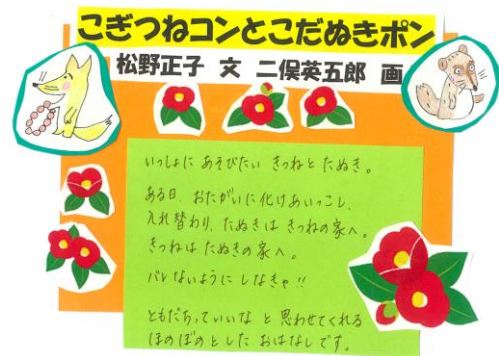 こぎつねコンとこだぬきポン
松野正子 文 二俣英五郎 画
いっしょに あそびたい きつねと たぬき。
ある日、おたがいに 化けあいっこし、
入れ替わり、たぬきは きつねの家へ。
きつねは たぬきの家へ。
バレないように しなきゃ!!
ともだちっていいな と 思わせてくれる
ほのぼのとした おはなしです。